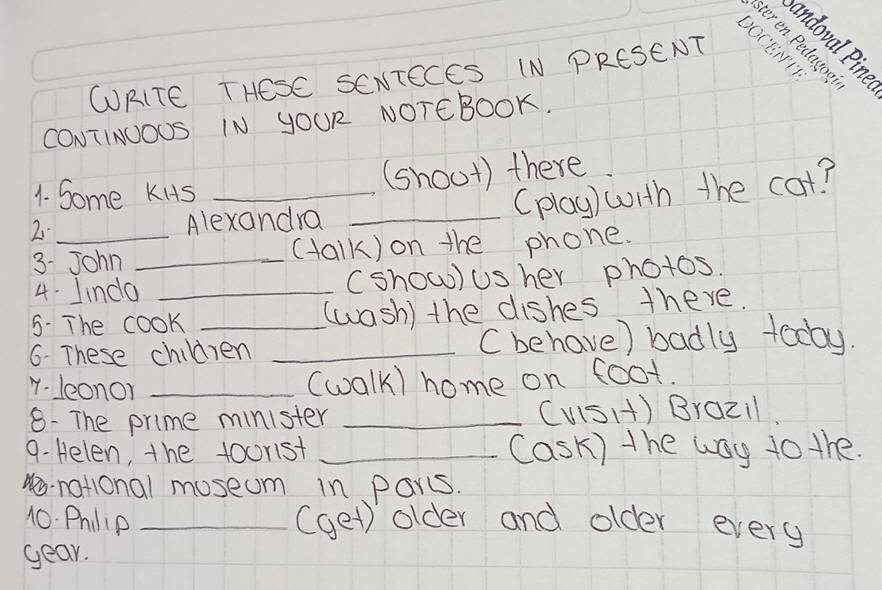 Sandoval Pineda
ister en Pedagogía
DOCENTE
WRITE THESE SENTECES IN PRESENT
CONTINUOUS IN YOUR NOTEBOOK.
1. Some Kits __________ (shout) there.
2. ________ Alexandra __________ (play) with the cat?
3- John __________ (talk) on the phone.
4. linda __________ (show) us her photos.
5- The cook ________ (wash) the dishes there.
6- These children ____________ (behave) badly today.
7. leonor __________ (walk) home on foot.
8- The prime minister ____________ (visit) Brazil.
9- Helen, the tourist ____________ (ask) the way to the.
national museum in paris.
10. Philip __________ (get) older and older every
year.